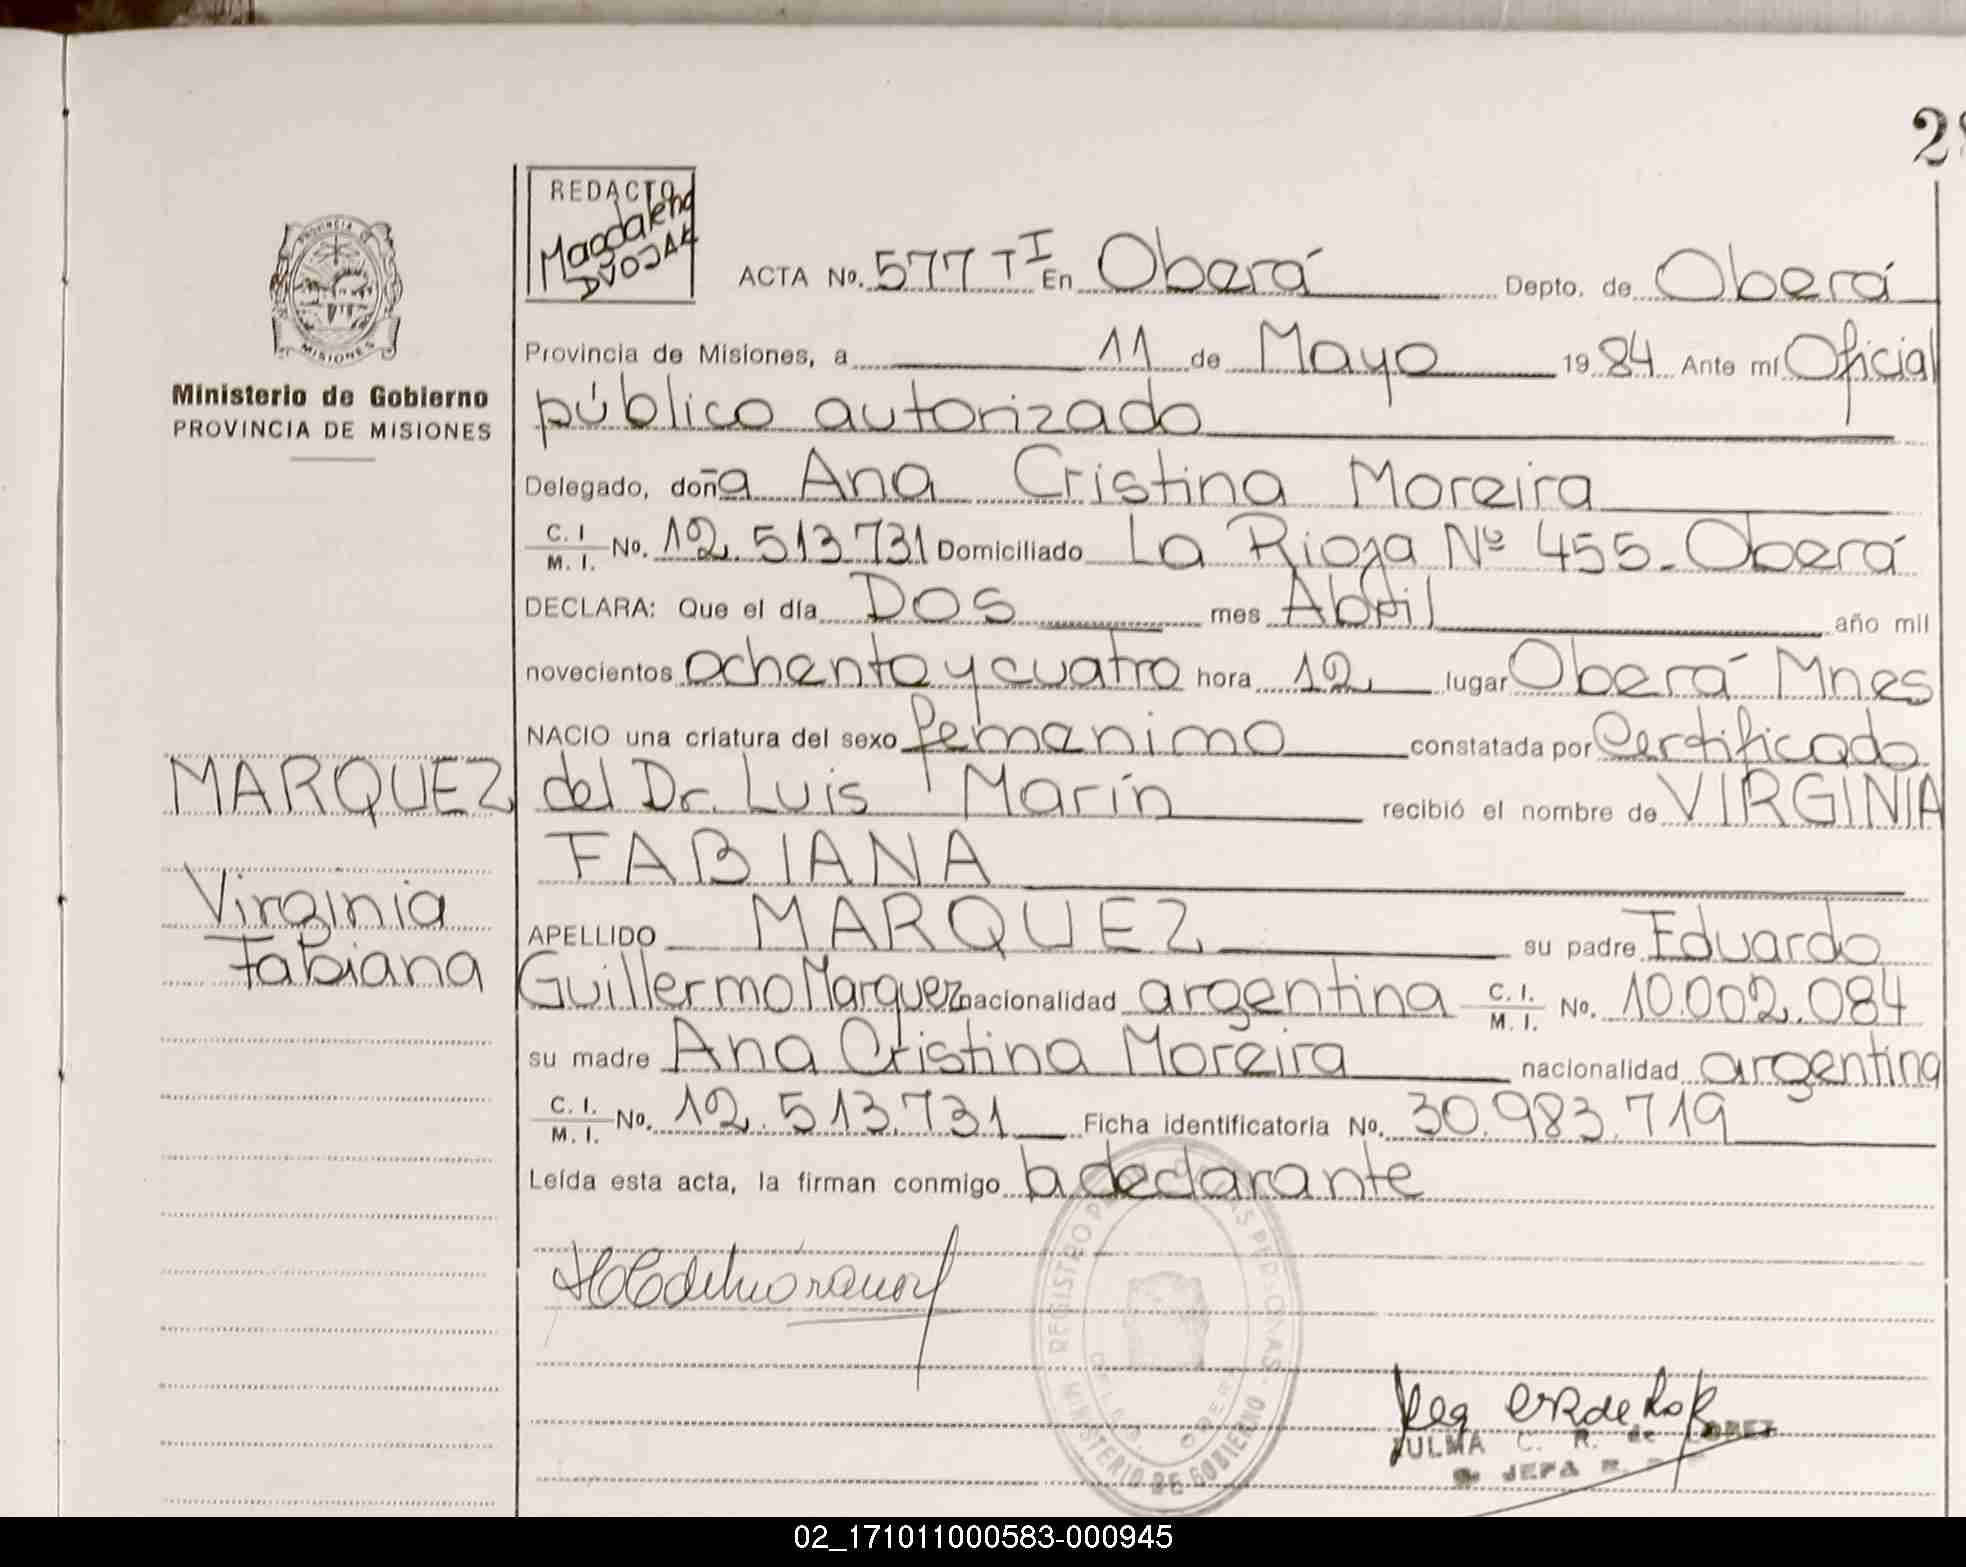 2
REDACTO
Magdalena
DVOJAK
PROVINCIA DE
MISIONES
ACTA No. 577 T I En Oberá Depto. de Oberá
Provincia de Misiones, a 11 de Mayo 1984 Ante mí Oficial
Ministerio de Gobierno
PROVINCIA DE MISIONES
público autorizado
Delegado, doña Ana Cristina Moreira
C. I. M. I. No. 12.513.731 Domiciliado La Rioja Nº 455. Oberá
DECLARA: Que el día Dos mes Abril año mil
novecientos ochenta y cuatro hora 12 lugar Oberá Mnes
NACIO una criatura del sexo femenino constatada por Certificado
MARQUEZ
del Dr. Luis Marín recibió el nombre de VIRGINIA
FABIANA
Virginia
Fabiana
APELLIDO MARQUEZ su padre Eduardo
Guillermo Marquez nacionalidad argentina C. I. M. I. No. 10.002.084
su madre Ana Cristina Moreira nacionalidad argentina
C. I. M. I. No. 12.513.731 Ficha identificatoria No. 30.983.719
Leída esta acta, la firman conmigo la declarante
REGISTRO PERSONAS
MINISTERIO DE GOBIERNO
JULMA C. R. de LOPEZ
JEFA
02_171011000583-000945